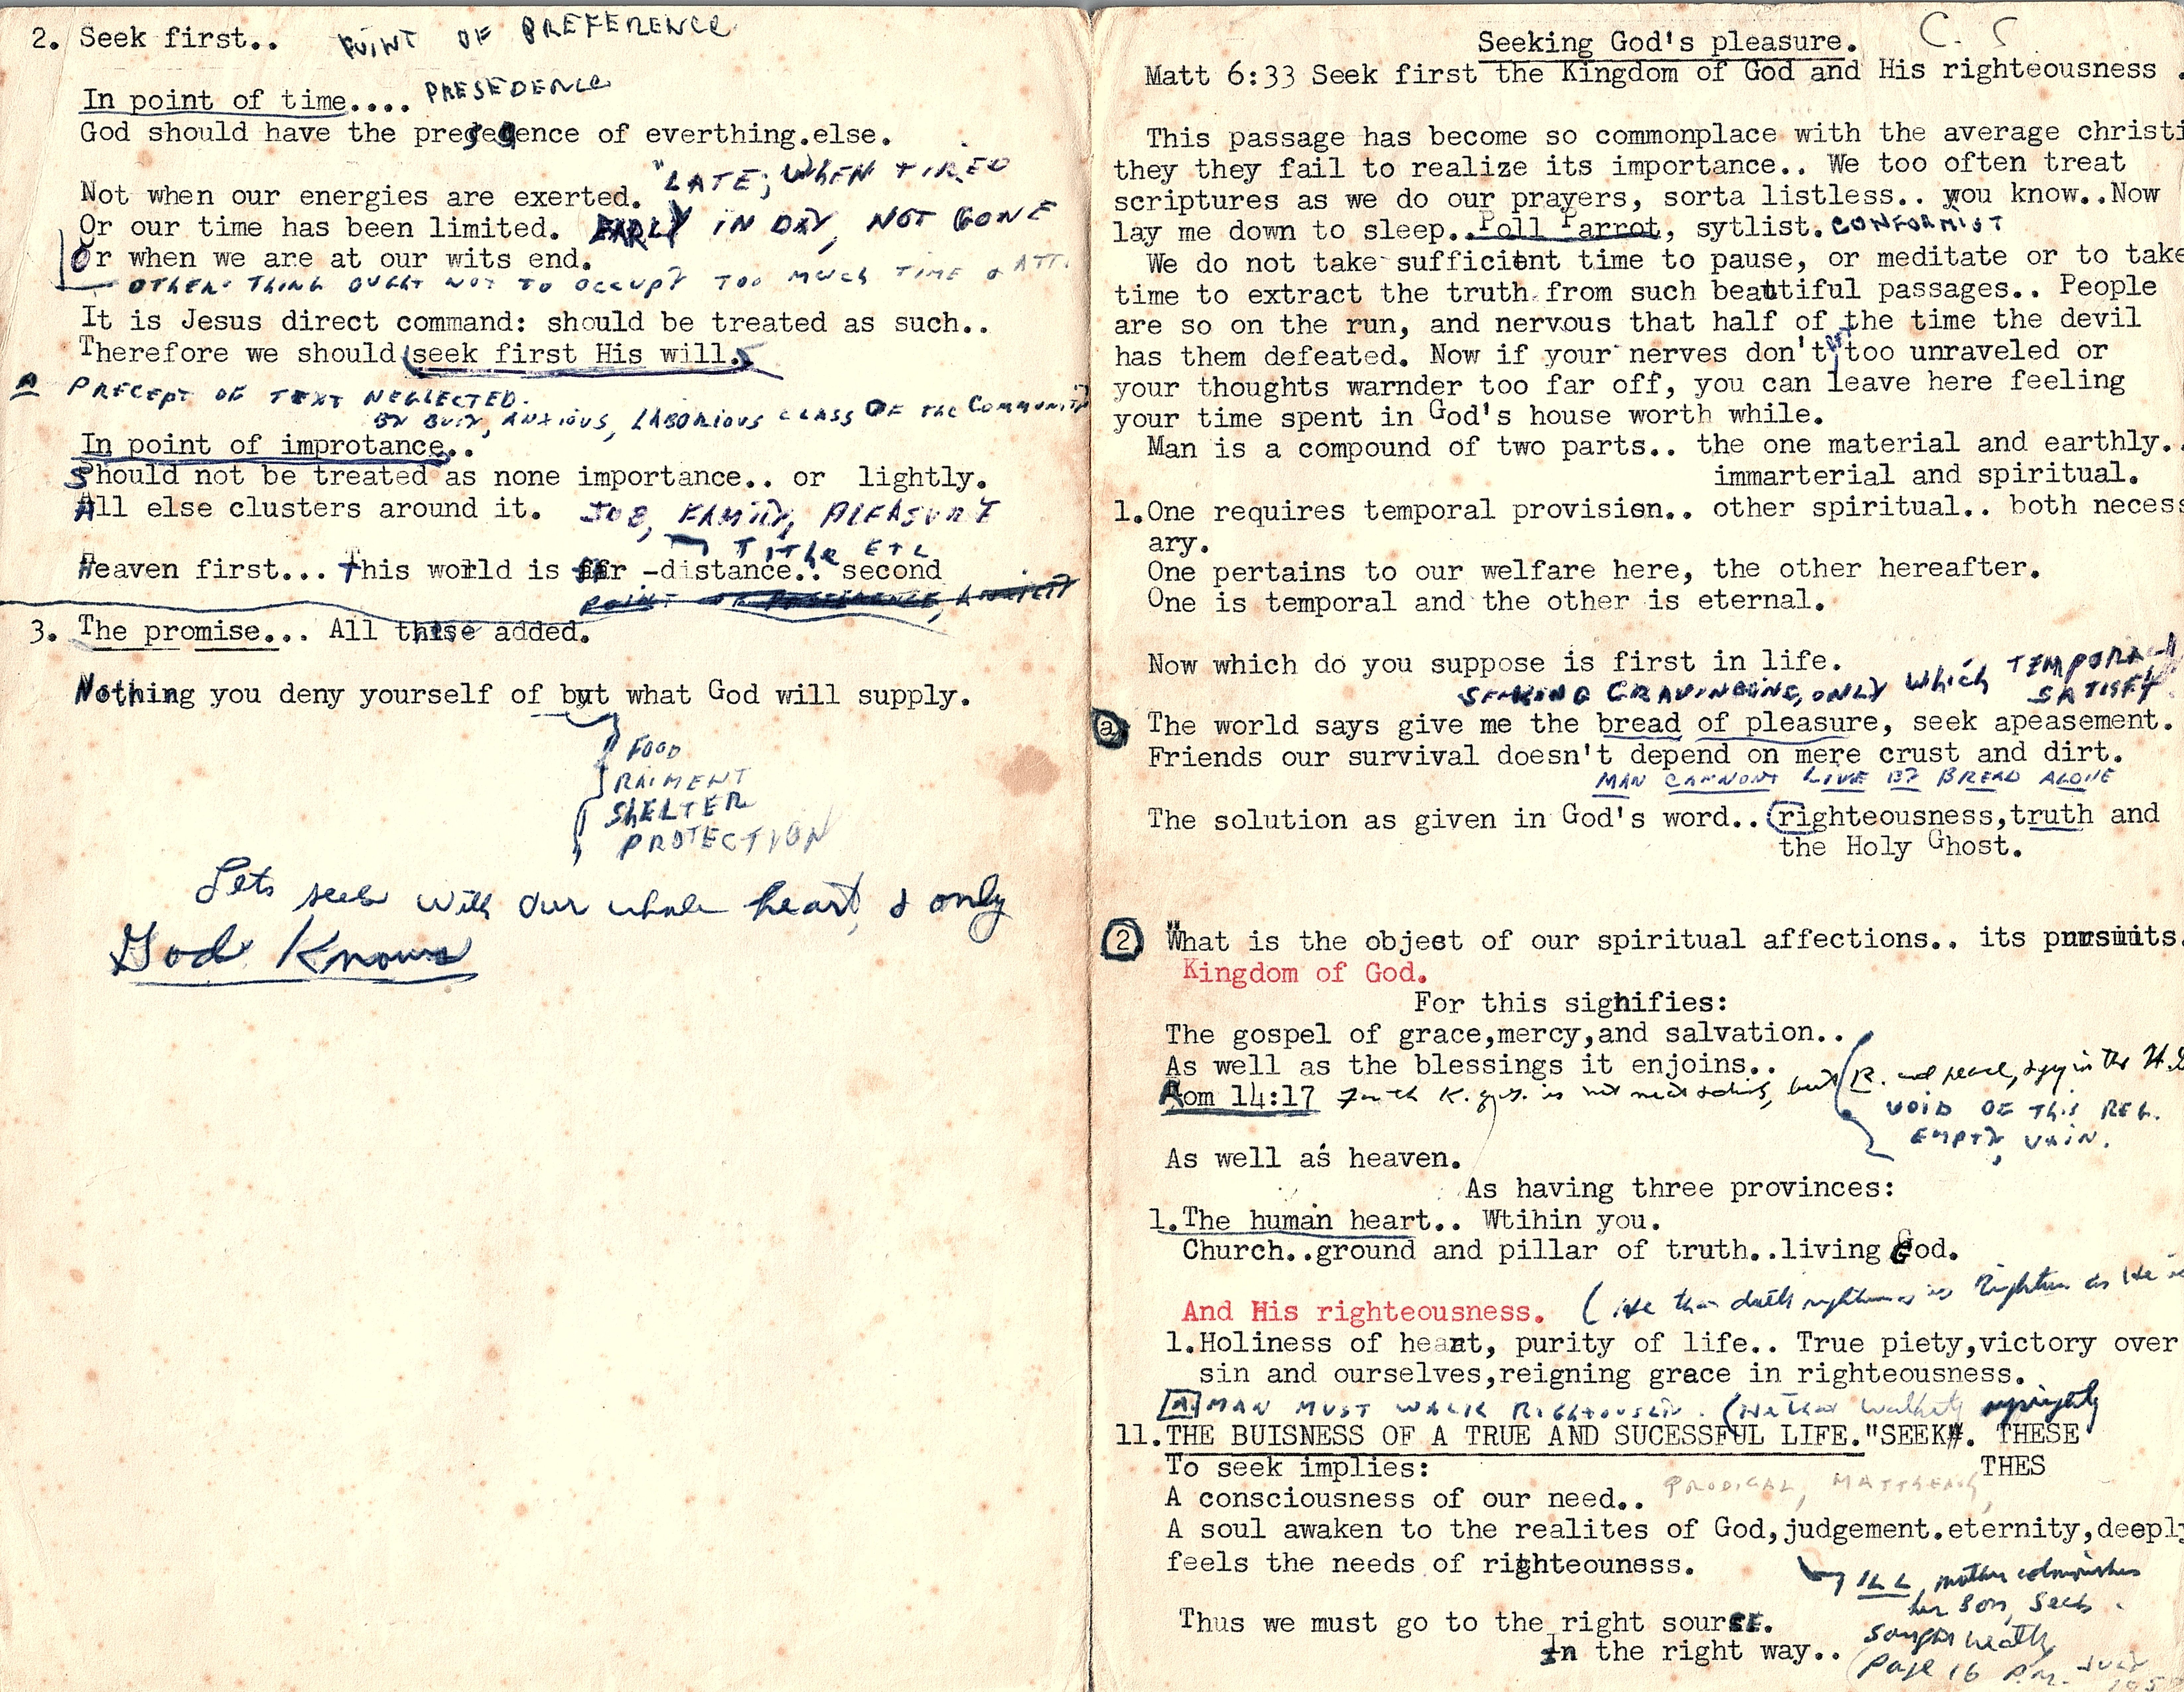 2. Seek first.. POINT OF PREFERENCE
In point of time.... PRESEDENCE
God should have the presedence of everthing.else.
Not when our energies are exerted. "LATE, WHEN TIRED
Or our time has been limited. EARLY IN DAY, NOT GONE
Or when we are at our wits end.
OTHER THING OUGHT NOT TO OCCUPY TOO MUCH TIME & ATT.
It is Jesus direct command: should be treated as such..
Therefore we should (seek first His will.)
A PRECEPT OF TEXT NEGLECTED.
BY BUSY, ANXIOUS, LABORIOUS CLASS OF THE COMMUNITY
In point of improtance..
Should not be treated as none importance.. or lightly.
All else clusters around it. JOB, FAMILY, PLEASURE
TITHE ETC
Heaven first... This world is far -distance.. second
3. The promise... All these added.
Nothing you deny yourself of but what God will supply.
FOOD
RAIMENT
SHELTER
PROTECTION
Lets seek with our whole heart, & only
God Knows
Seeking God's pleasure. C. S
Matt 6:33 Seek first the Kingdom of God and His righteousness .
This passage has become so commonplace with the average christi
they they fail to realize its importance.. We too often treat
scriptures as we do our prayers, sorta listless.. you know..Now
lay me down to sleep..Poll Parrot, sytlist. CONFORMIST
We do not take sufficient time to pause, or meditate or to take
time to extract the truth from such beautiful passages.. People
are so on the run, and nervous that half of the time the devil
has them defeated. Now if your nerves don't too unraveled or
your thoughts warnder too far off, you can leave here feeling
your time spent in God's house worth while.
Man is a compound of two parts.. the one material and earthly..
immarterial and spiritual.
1.One requires temporal provision.. other spiritual.. both necess
ary.
One pertains to our welfare here, the other hereafter.
One is temporal and the other is eternal.
Now which do you suppose is first in life.
ONLY WHICH TEMPORALLY
SATISFY
a The world says give me the bread of pleasure, seek apeasement.
Friends our survival doesn't depend on mere crust and dirt.
MAN CANNONT LIVE BY BREAD ALONE
The solution as given in God's word.. righteousness,truth and
the Holy Ghost.
2 What is the object of our spiritual affections.. its pursuits.
Kingdom of God.
For this signifies:
The gospel of grace,mercy,and salvation..
As well as the blessings it enjoins..
Rom 14:17 For the K. of G. is not meat & drink, but R. and peace, & joy in the H.G
VOID OF THIS REL.
EMPTY, VAIN.
As well as heaven.
As having three provinces:
1.The human heart.. Wtihin you.
Church..ground and pillar of truth..living God.
And His righteousness. (He that doeth righteousness is Righteous as He is
1.Holiness of heart, purity of life.. True piety,victory over
sin and ourselves,reigning grace in righteousness.
A MAN MUST WALK RIGHTOUSLY. (He that walketh uprightly
11.THE BUISNESS OF A TRUE AND SUCESSFUL LIFE."SEEK". THESE
To seek implies: THES
A consciousness of our need.. PRODIGAL, MATTHEW,
A soul awaken to the realites of God,judgement.eternity,deeply
feels the needs of righteouness.
ILL, mother admonishes
her son, seek
Thus we must go to the right sourSE.
sought
In the right way..
Page 16 P.M. July